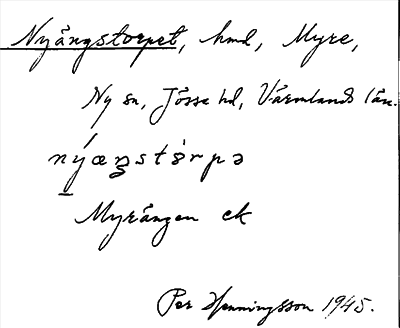 Nyängstorpet, hmd, Myre,
Ny sn, Jösse hd, Värmlands län.
nýæŋstòrpə
Myrängen ek
Per Henningsson 1945.